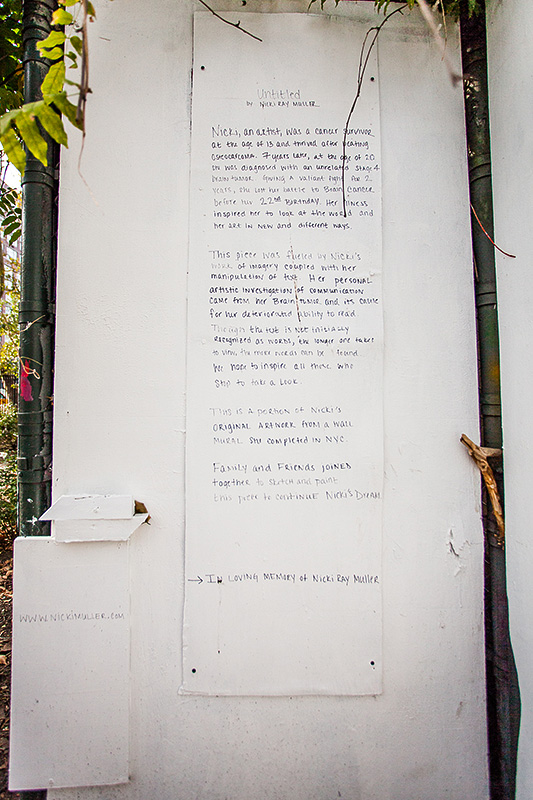 Untitled
BY NICKI RAY MULLER
Nicki, an artist, was a cancer survivor
at the age of 13 and thrived after beating
osteosarcoma. 7 years later, at the age of 20
she was diagnosed with an unrelated stage 4
brain tumor. Giving a valiant fight for 2
years, she lost her battle to Brain Cancer
before her 22nd Birthday. Her illness
inspired her to look at the world and
her art in new and different ways.
This piece was fueled by Nicki's
work of imagery coupled with her
manipulation of text. Her personal
artistic investigation of communication
came from her Brain tumor and its cause
for her deteriorated ability to read.
Though the text is not initially
recognized as words, the longer one takes
to view, the more words can be found.
We hope to inspire all those who
stop to take a look.
This is a portion of Nicki's
original artwork from a wall
mural she completed in NYC.
Family and Friends joined
together to sketch and paint
this piece to continue Nicki's Dream
→ IN LOVING MEMORY of Nicki Ray Muller
WWW.NICKIMULLER.COM